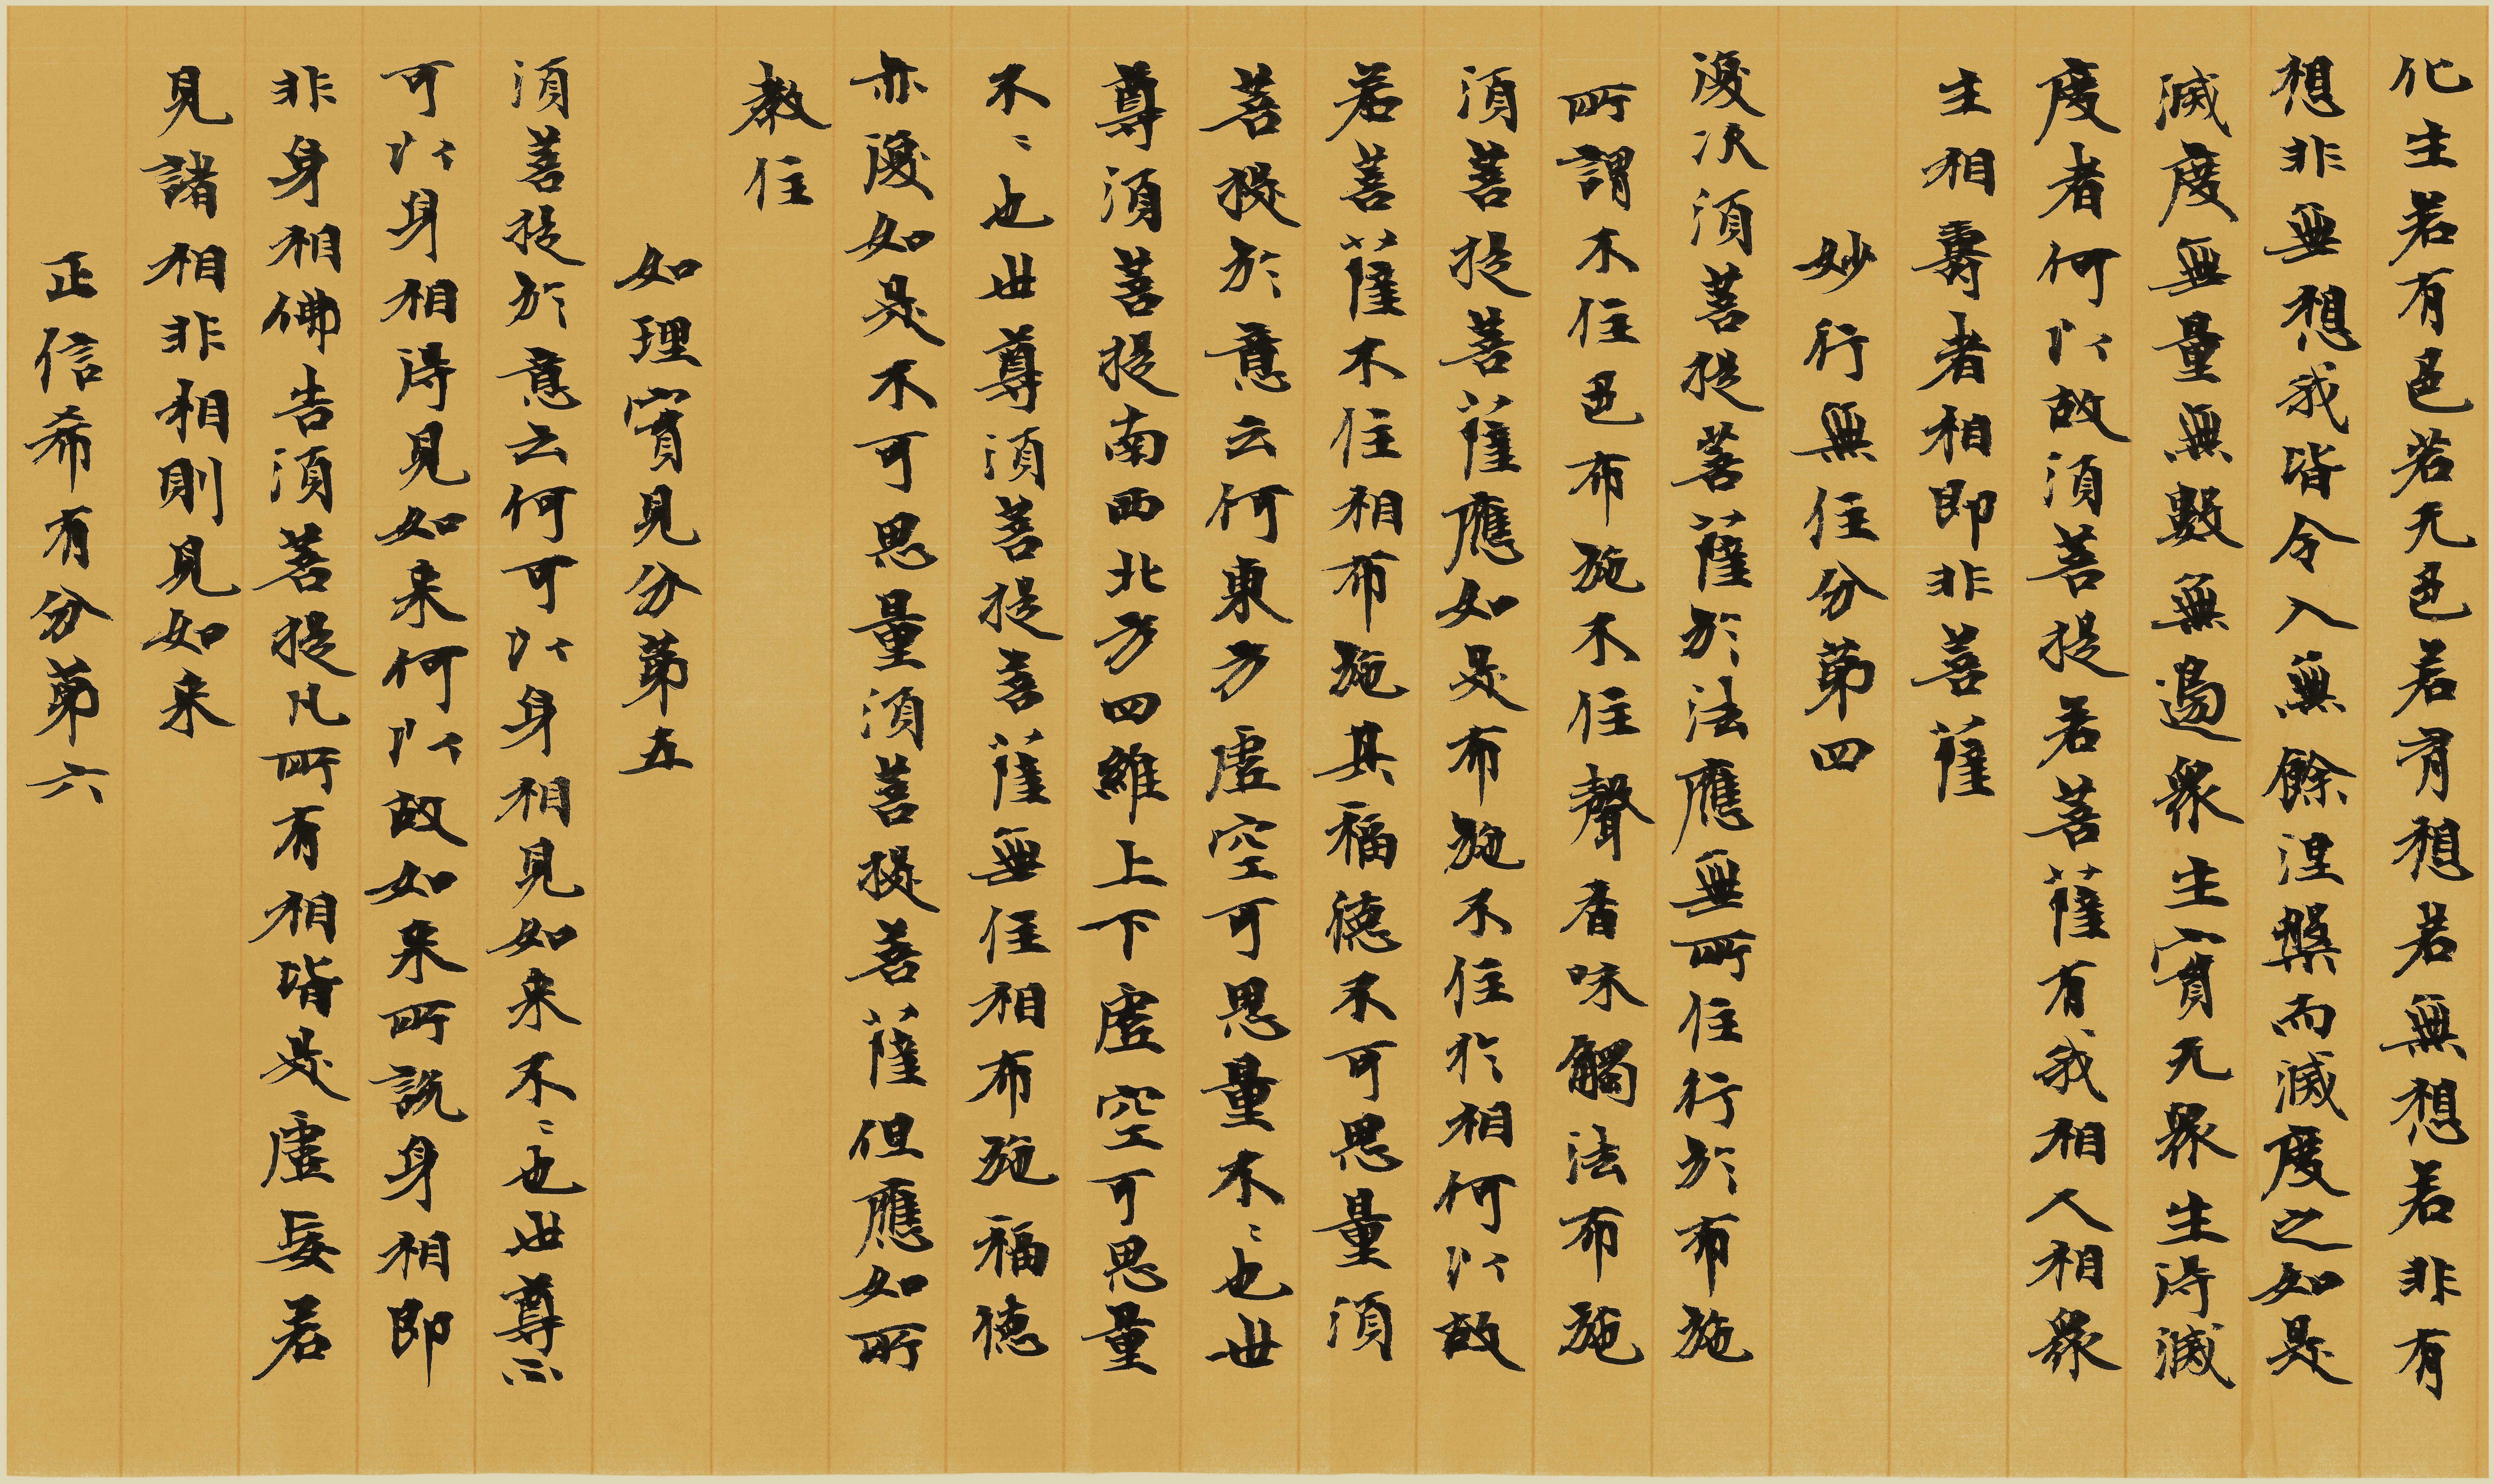 化生若有色若无色若有想若無想若非有
想非無想我皆令入無餘涅槃而滅度之如是
滅度無量無數無邊眾生實无眾生得滅
度者何以故須菩提若菩薩有我相人相眾
生相壽者相即非菩薩
妙行無住分第四
復次須菩提菩薩於法應無所住行於布施
所謂不住色布施不住聲香味觸法布施
須菩提菩薩應如是布施不住於相何以故
若菩薩不住相布施其福德不可思量須
菩提於意云何東方虛空可思量不〻也世
尊須菩提南西北方四維上下虛空可思量
不〻也世尊須菩提菩薩無住相布施福德
亦復如是不可思量須菩提菩薩但應如所
教住
如理實見分第五
須菩提於意云何可以身相見如来不〻也世尊不
可以身相得見如来何以故如来所說身相即
非身相佛告須菩提凡所有相皆是虛妄若
見諸相非相則見如来
正信希有分第六